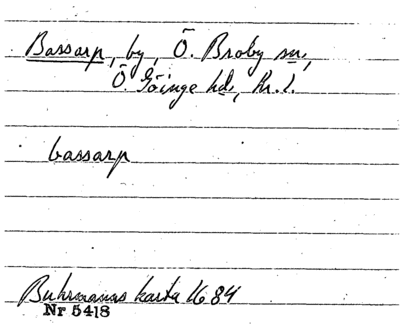 Bassarp, by, Ö. Broby sn,
Ö. Göinge hd, Kr. l.
bassarp
Buhrmanns karta 1684
Nr 5418